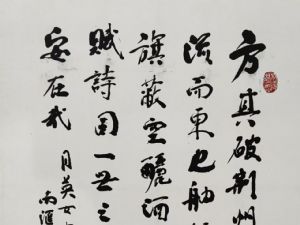 方其破荆州
流而東也舳
旗蔽空釃酒
賦詩固一世之
安在哉
月英女